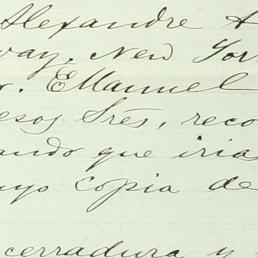 Alexandre A
way, New Yor
r. EManuel
esos Srés, reco
ando que irias
uyo copia de
cerradura y